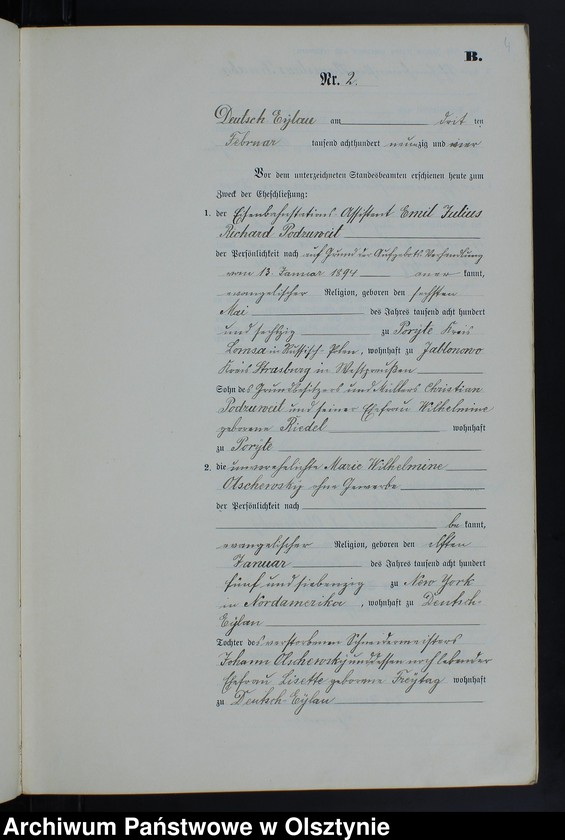 B.
Nr. 2.
Deutsch Eylau am dritten
Februar tausend achthundert neunzig und vier
Vor dem unterzeichneten Standesbeamten erschienen heute zum
Zweck der Eheschließung:
1. der Eisenbahnstations Assistent Emil Julius
Richard Podzuweit
der Persönlichkeit nach auf Grund der Aufgebots-Verhandlung
vom 13. Januar 1894 aner kannt,
evangelischer Religion, geboren den sechsten
Mai des Jahres tausend acht hundert
und sechszig zu Poryte Kreis
Lomsa in Russisch-Polen, wohnhaft zu Jablonowo
Kreis Strasburg in Westpreußen
Sohn des Grundbesitzers und Christian
Podzuweit und seiner Ehefrau Wilhelmine
geborene Riedel wohnhaft
zu Poryte
2. die unverehelichte Marie Wilhelmine
Olschewsky ohne Gewerbe
der Persönlichkeit nach
be kannt,
evangelischer Religion, geboren den elften
Januar des Jahres tausend acht hundert
fünf und siebenzig zu New York
in Nordamerika, wohnhaft zu Deutsch-
Eylau
Tochter des verstorbenen Schneidermeisters
Johann Olschewsky und dessen noch lebender
Ehefrau Lisette geborene Freytag wohnhaft
zu Deutsch-Eylau
Archiwum Państwowe w Olsztynie